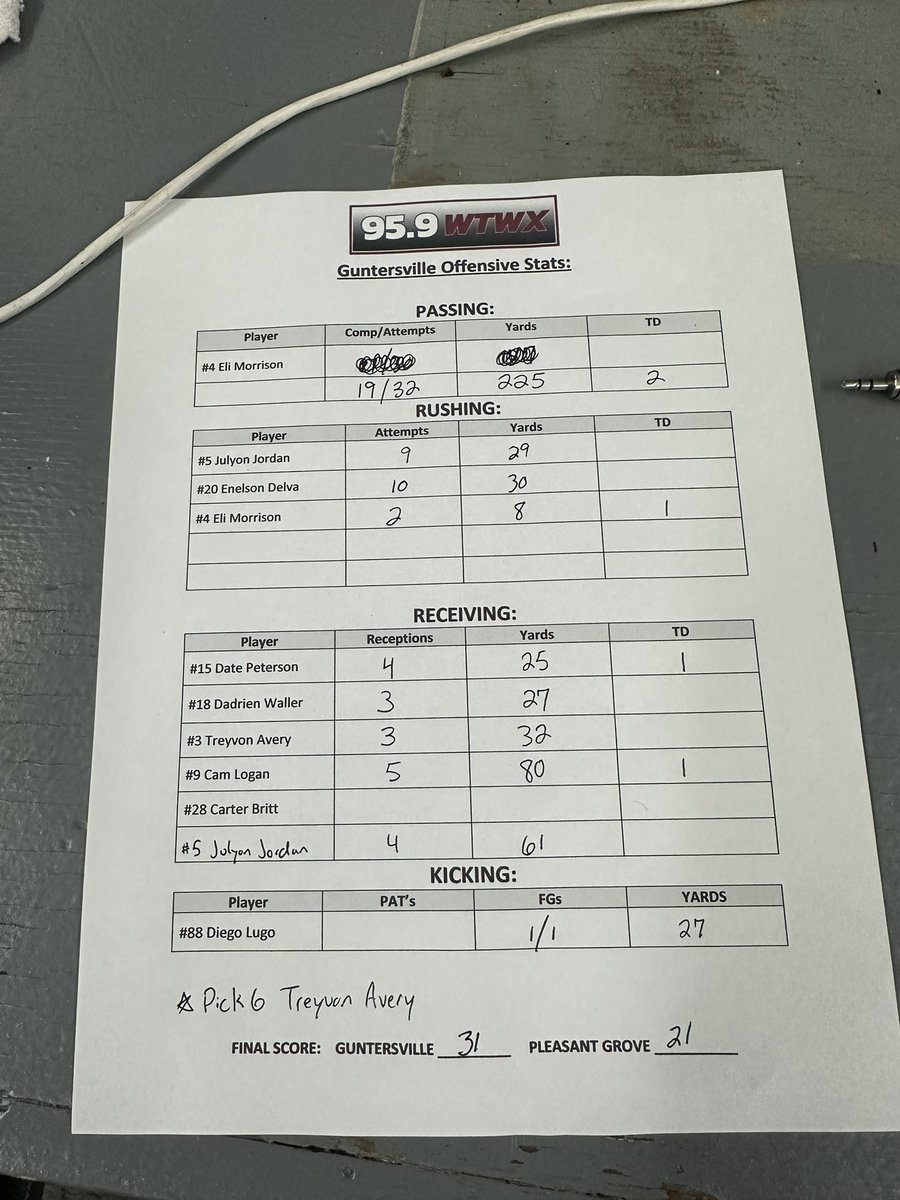 95.9 WTWX
Guntersville Offensive Stats:
PASSING:
Player Comp/Attempts Yards TD
#4 Eli Morrison
19/32 225 2
RUSHING:
Player Attempts Yards TD
#5 Julyon Jordan 9 29
#20 Enelson Delva 10 30
#4 Eli Morrison 2 8 1
RECEIVING:
Player Receptions Yards TD
#15 Date Peterson 4 25 1
#18 Dadrien Waller 3 27
#3 Treyvon Avery 3 32
#9 Cam Logan 5 80 1
#28 Carter Britt
#5 Julyon Jordan 4 61
KICKING:
Player PAT's FGs YARDS
#88 Diego Lugo 1/1 27
Pick 6 Treyvon Avery
FINAL SCORE: GUNTERSVILLE 31 PLEASANT GROVE 21